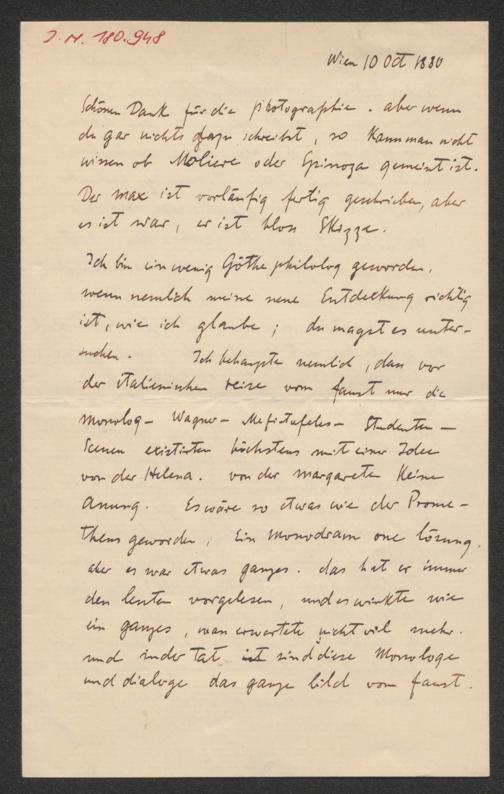 J. N. 180.948
Wien 10 Oct 1880
Schönen Dank für die photographie. aber wenn
du gar nichts dazu schreibst, so kann man nicht
wissen ob Moliere oder Spinoza gemeint ist.
Der Max ist vorläufig fertig geschrieben, aber
es ist war, er ist blos Skizze.
Ich bin ein wenig Göthe philolog geworden,
wenn nemlich meine neue Entdeckung richtig
ist, wie ich glaube; du magst es unter-
suchen. Ich behaupte nemlich, dass vor
der italienischen reise vom faust nur die
Monolog – Wagner – Mefistofeles – Studenten –
Scenen existirten höchstens mit einer Idee
von der Helena. von der margarete keine
Anung. Es wäre so etwas wie der Prome-
theus geworden, Ein Monodram one lösung.
aber es war etwas ganzes. das hat er immer
den leuten vorgelesen, und es wirkte wie
ein ganzes, man erwartete nicht vil mehr.
und in der Tat ist sind diese Monologe
und dialoge das ganze bild vom faust.